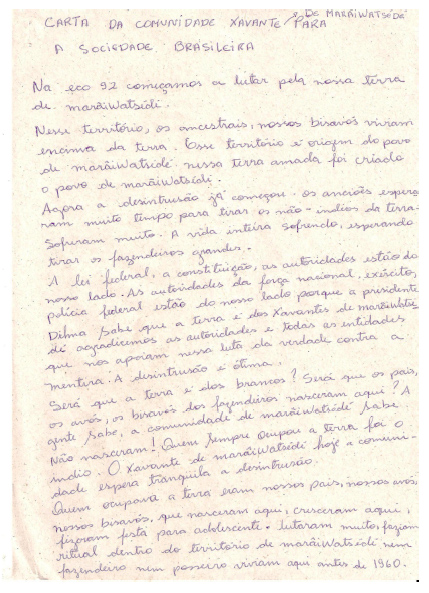 CARTA DA COMUNIDADE XAVANTE / DE MARÃIWATSÉDÉ PARA
A SOCIEDADE BRASILEIRA
Na eco 92 começamos a lutar pela nossa terra
de marãiWatsédé.
Nesse território, os ancestrais, nossos bisavós viviam
encima da terra. Esse território é origem do povo
de marãiWatsédé. nessa terra amada foi criado
o povo de marãiWatsédé.
Agora a desintrusão já começou. os anciões espera-
ram muito tempo para tirar os não-índios da terra.
Sofreram muito. A vida inteira sofrendo, esperando
tirar os fazendeiros grandes.
A lei federal, a constituição, as autoridades estão do
nosso lado. As autoridades da força nacional, exército,
polícia federal estão do nosso lado porque a presidente
Dilma sabe que a terra é dos Xavantes de marãiWatsé
dé agradecemos as autoridades e todas as entidades
que nos apoiam nessa luta da verdade contra a
mentira. A desintrusão é ótima.
Será que a terra é dos brancos? Será que os pais,
os avós, os bisavós dos fazendeiros nasceram aqui? A
gente sabe, a comunidade de marãiWatsédé sabe.
Não nasceram! Quem sempre ocupou a terra foi o
índio. O Xavante de marãiWatsédé hoje a comuni-
dade espera tranquila a desintrusão.
Quem ocupava a terra eram nossos pais, nossos avós,
nossos bisavós, que nasceram aqui, cresceram aqui,
fizeram festa para adolescente. lutaram muito, faziam
ritual dentro do território de marãiWatsédé nem
fazendeiro nem posseiro viviam aqui antes de 1960.